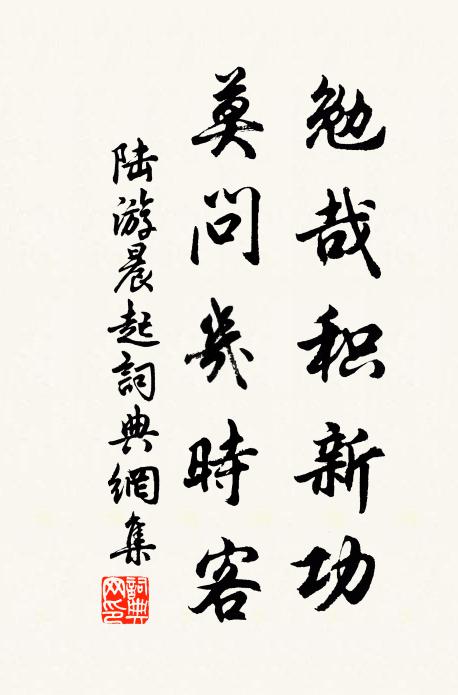 勉哉积新功
莫问幾時客
陆游晨起詞典網集
詞典网印